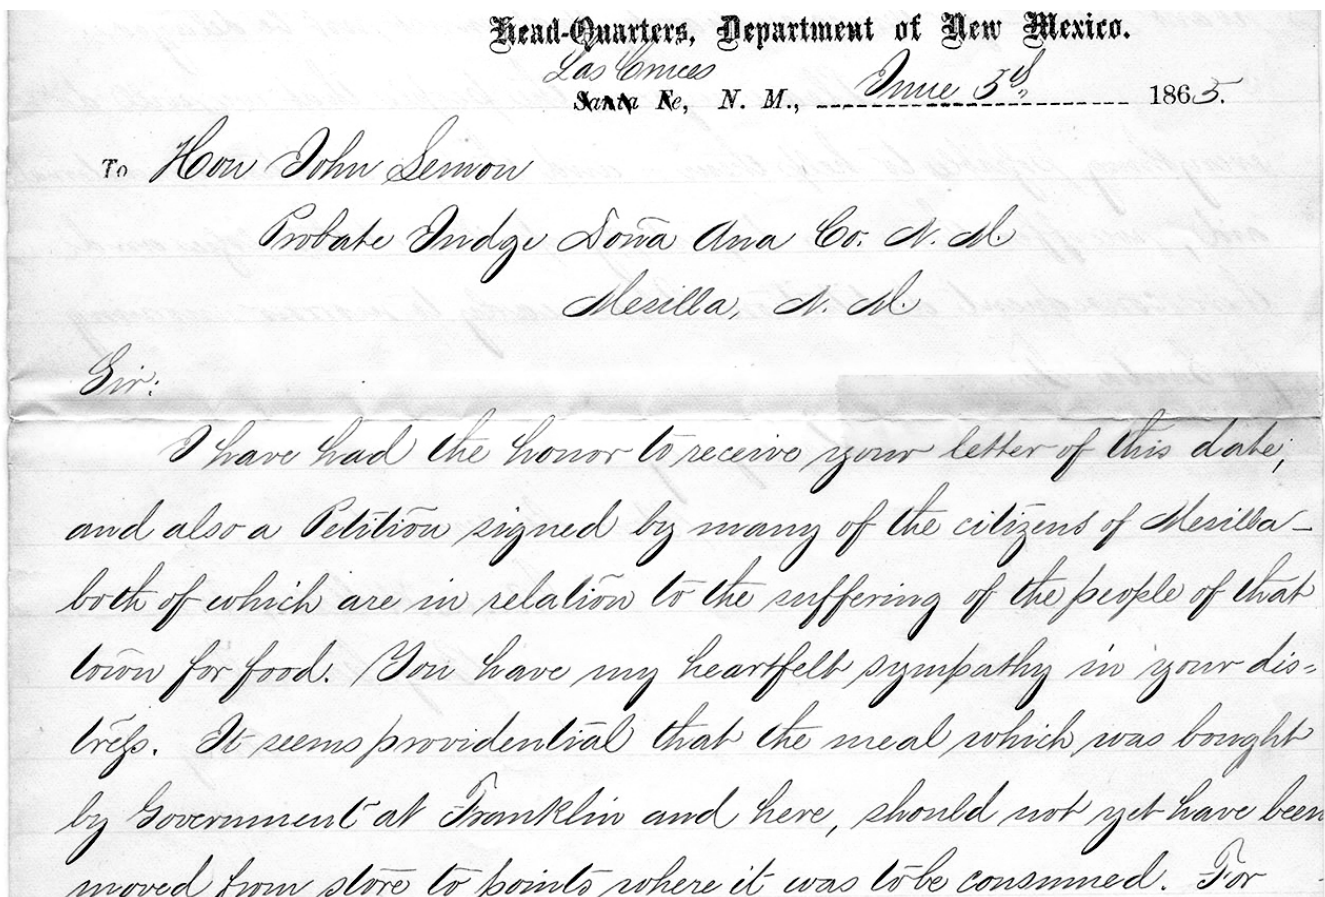 Head-Quarters, Department of New Mexico.
Las Cruces
Santa Fe, N. M., June 5th 1865.
To Hon John Lemon
Probate Judge Doña Ana Co. N. M.
Mesilla, N. M.
Sir:
I have had the honor to receive your letter of this date,
and also a Petition signed by many of the citizens of Mesilla–
both of which are in relation to the suffering of the people of that
town for food. You have my heartfelt sympathy in your dis=
tress. It seems providential that the meal which was bought
by Government at Franklin and here, should not yet have been
moved from store to points where it was to be consumed. For